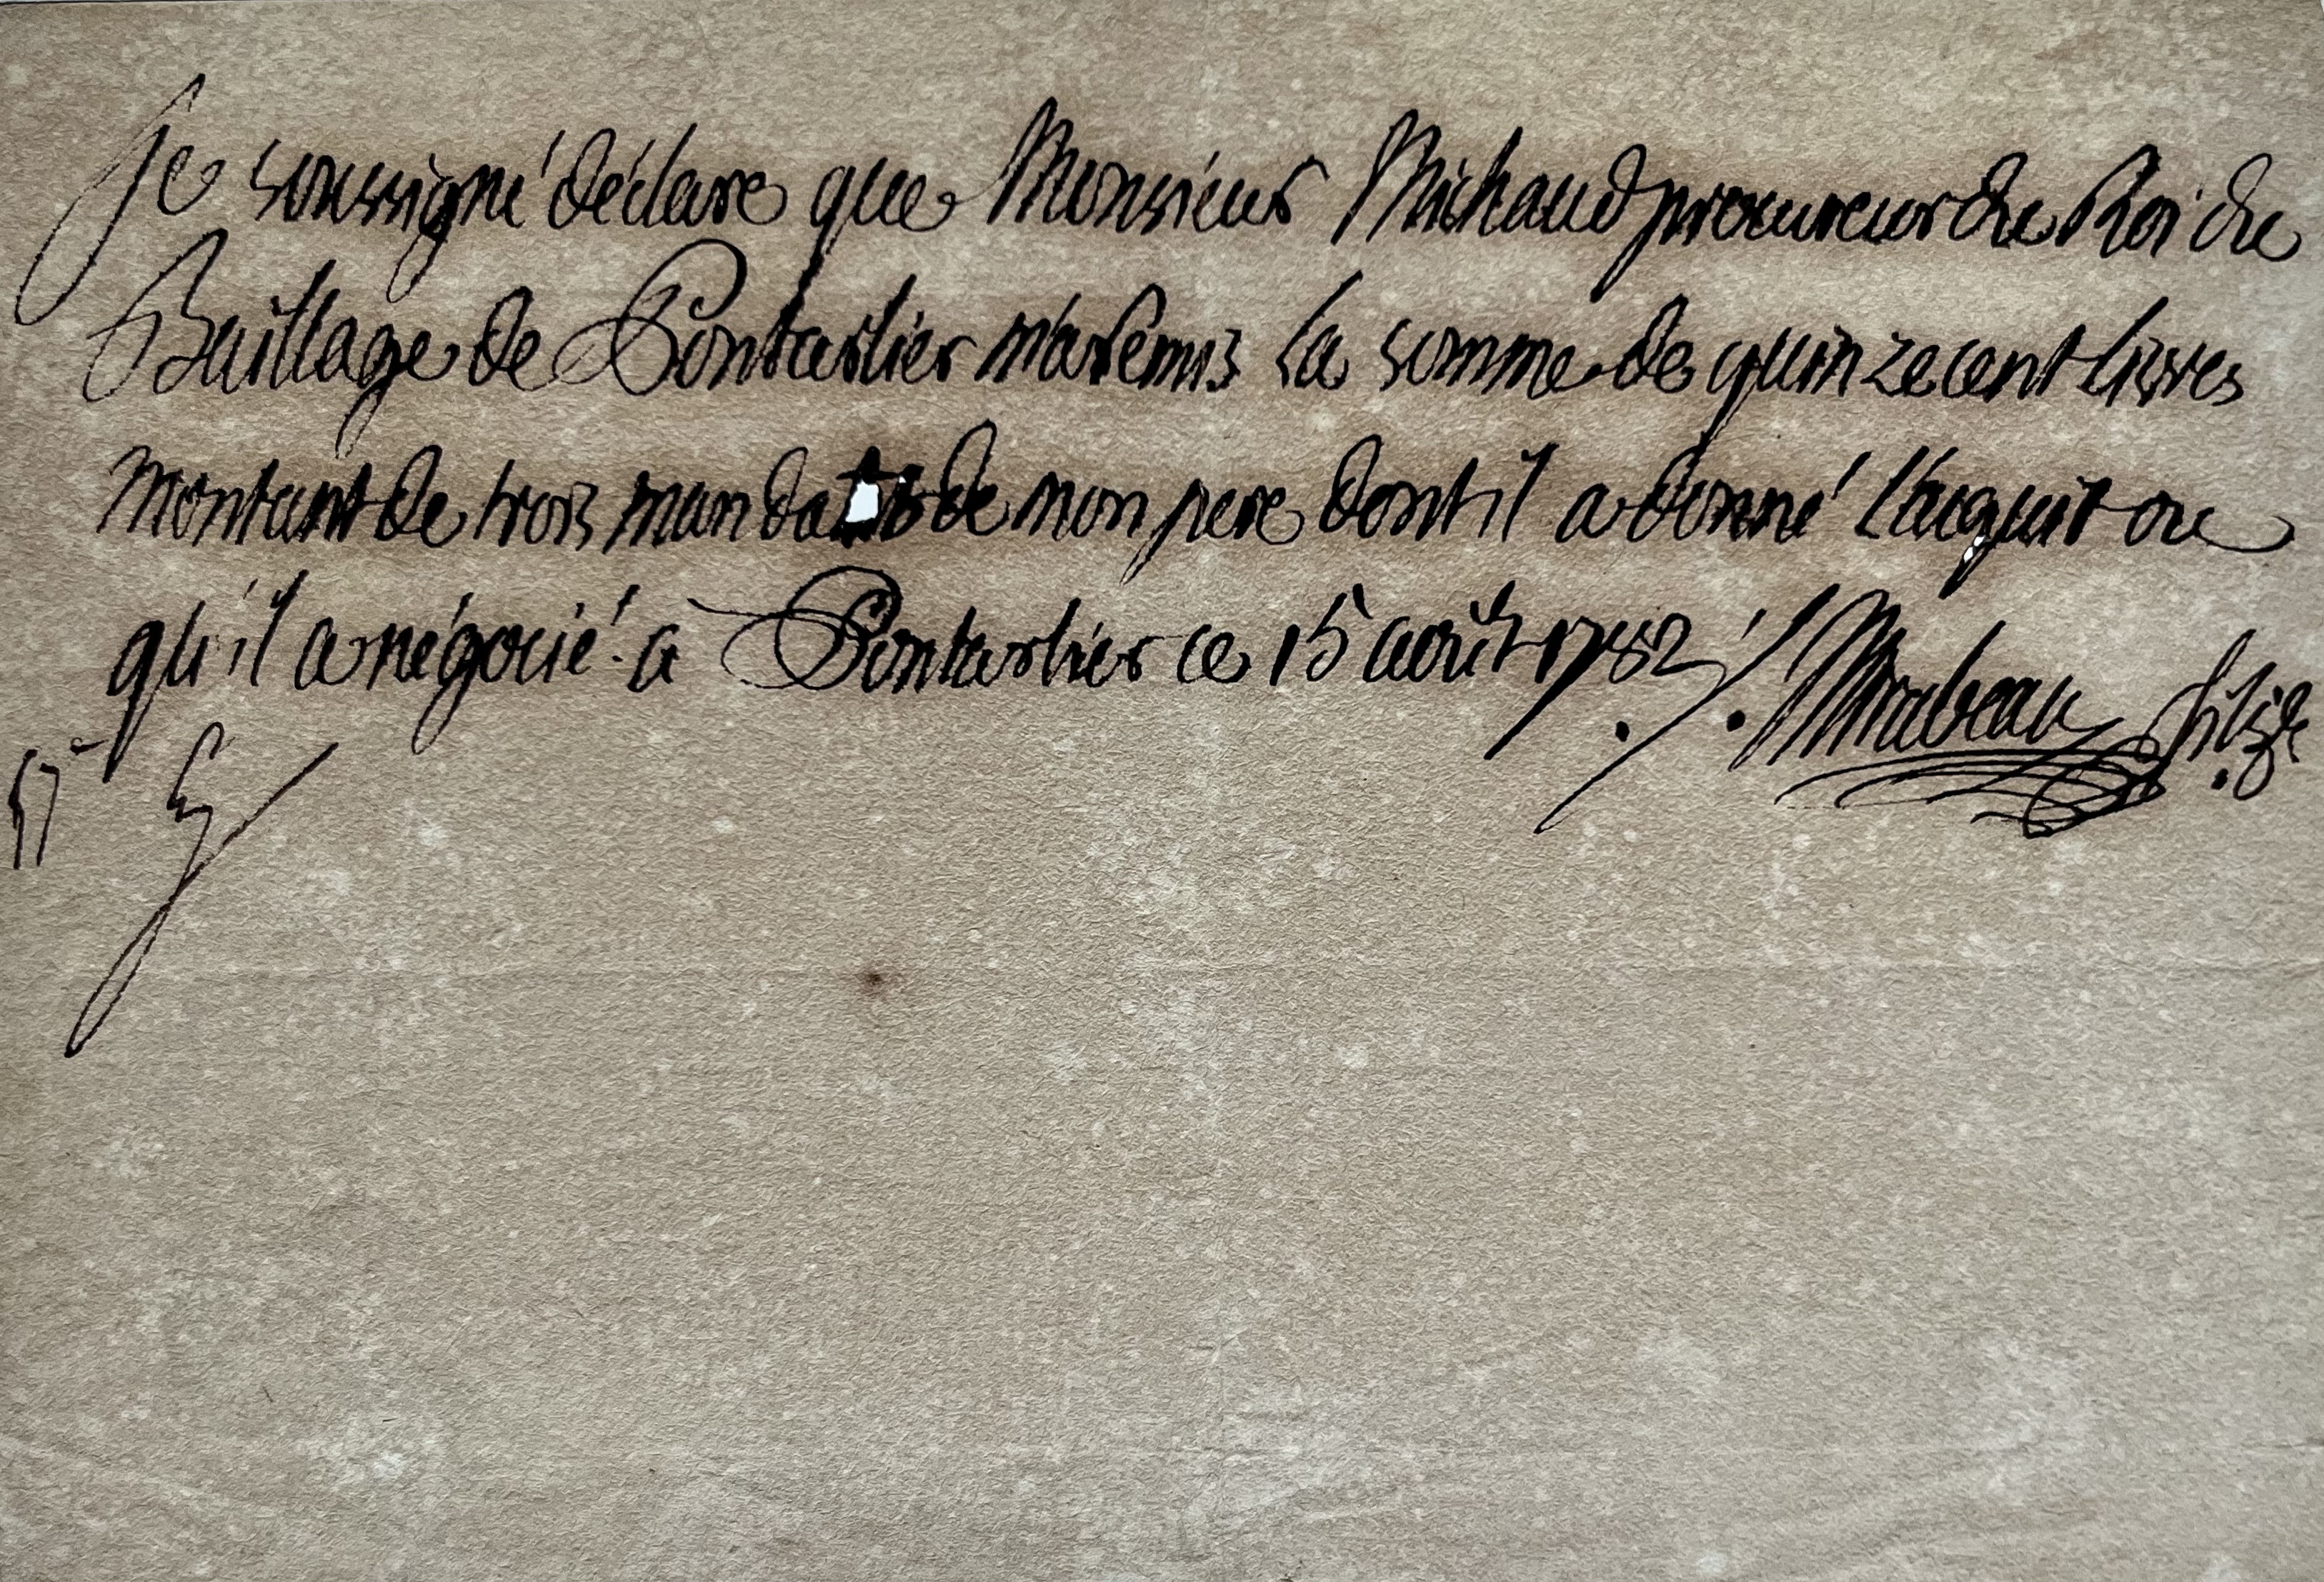 Je soussigné déclare que Monsieur Michaud procureur du Roi du
Baillage de Pontarlier m'a remis la somme de quinze cent livres
montant de trois mandats de mon pere dont il a donné l'acquit ou
qu'il a négocié. à Pontarlier ce 15 août 1782 ./. Mirabeau fils